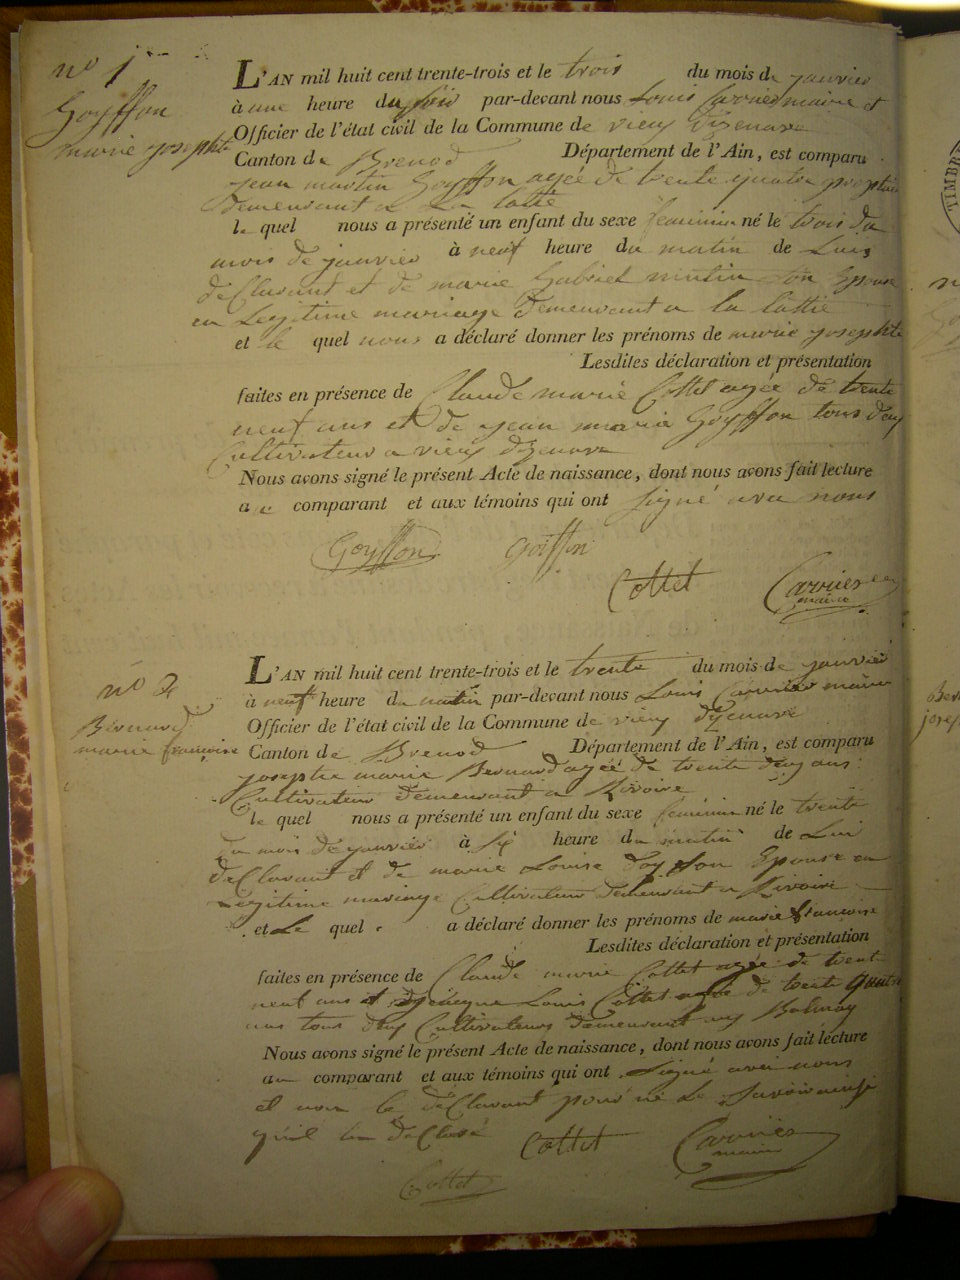 no 1
Goyffon
marie josephte
L'AN mil huit cent trente-trois et le trois du mois de janvier
à une heure du soir par-devant nous Louis Carrier maire et
Officier de l'état civil de la Commune de vieux dizenave
Canton de Brenod Département de l'Ain, est comparu
jean martin Goyffon agée de trente quatre
demeurant a La
le quel nous a présenté un enfant du sexe feminin né le trois du
mois de janvier à neuf heure du matin de Lui
deClarant et de marie Gabriel son Epouse
en Legitime mariage demeurant a la
et le quel nous a déclaré donner les prénoms de marie josephte
Lesdites déclaration et présentation
faites en présence de Claude marie Cottet agée de trente
neuf ans et de jean marie Goyffon tous deux
Cultivateur a vieux dizenave
Nous avons signé le présent Acte de naissance, dont nous avons fait lecture
a comparant et aux témoins qui ont signé avec nous
Goyffon Goiffon
Cottet Carrier
maire
no 2
Bernard
marie françoise
L'AN mil huit cent trente-trois et le trente du mois de janvier
à neuf heure du matin par-devant nous Louis Carrier maire
Officier de l'état civil de la Commune de vieux dizenave
Canton de Brenod Département de l'Ain, est comparu
josepte marie Bernard agée de trente deux ans
Cultivateur demeurant a Rivoire
le quel nous a présenté un enfant du sexe feminin né le trente
du mois de janvier à six heure du matin de Lui
deClarant et de marie Louise Goyffon Epouse en
Legitime mariage Cultivateur demeurant a Rivoire
et Le quel a déclaré donner les prénoms de marie françoise
Lesdites déclaration et présentation
faites en présence de Claude marie Cottet agée de trente
neuf ans et Louis Cottet agée de trente quatre
ans tous deux Cultivateurs demeurant aux Balmay
Nous avons signé le présent Acte de naissance, dont nous avons fait lecture
au comparant et aux témoins qui ont signé avec nous
et non le deClarant pour ne Le savoir ainsi
qu'il la deClaré
Cottet Carrier
maire
Cottet
TIMBRE